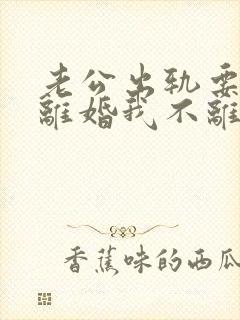 老公出轨要
離婚我不離
香蕉味的西瓜